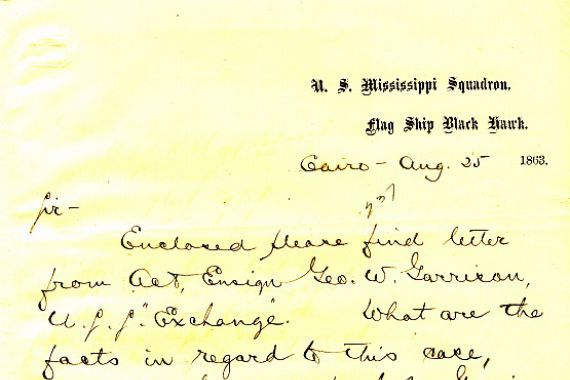 U. S. Mississippi Squadron,
Flag Ship Black Hawk.
Cairo - Aug. 25 1863.
Sir -
Enclosed please find letter
from Act, Ensign Geo. W. Garrison,
U. S. S. "Exchange". What are the
facts in regard to this case,